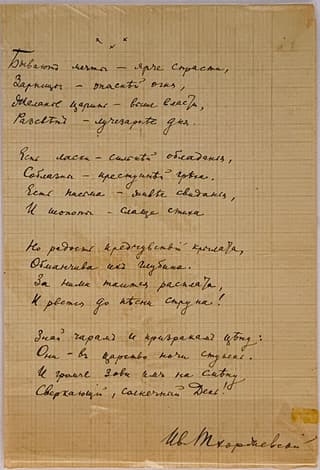 * * *
Бываютъ мечты – ярче страсти,
Зарницы – опаснѣй огня,
Желанье царить – выше власти,
Разсвѣтъ – лучезарнѣе дня.
Есть ласки – сильнѣй обладанья,
Соблазны – преступнѣй грѣха.
Есть письма – живѣе свиданья,
И шопоты – слаще стиха.
Но радость предчувствій крылата,
Обманчива ихъ глубина.
За ними таится расплата,
И рвется до пѣсни струна!
Знай чарамъ и призракамъ цѣну:
Они – въ царство ночи ступень.
И громче зови имъ на смѣну
Сверкающій, солнечный День!
Ив. Тхоржевскій